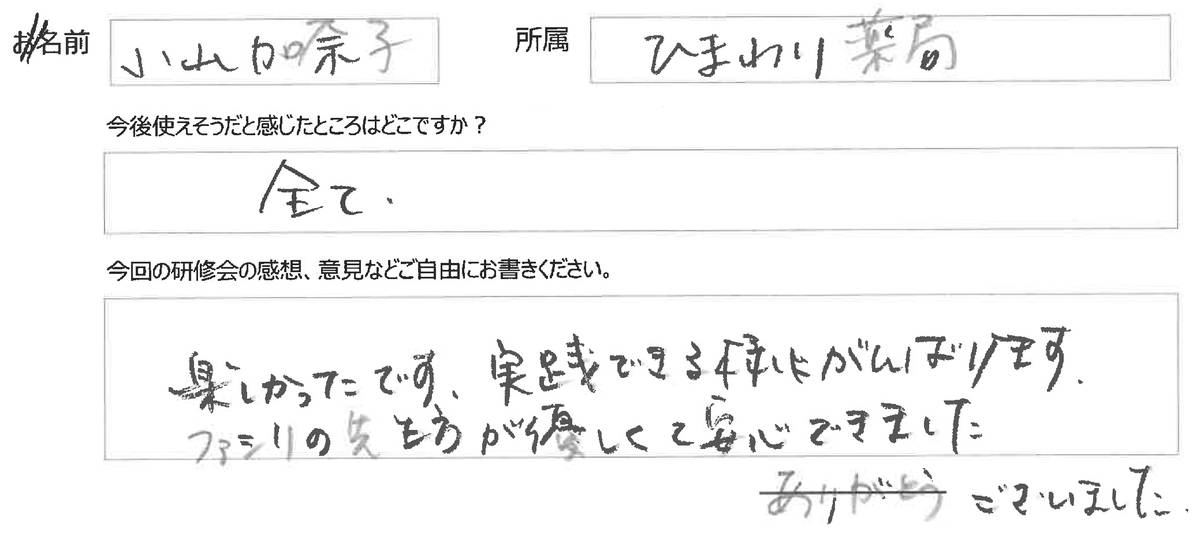 お名前 小山加奈子 所属 ひまわり薬局
今後使えそうだと感じたところはどこですか？
全て.
今回の研修会の感想、意見などご自由にお書きください。
楽しかったです、実践できる様にがんばります.
ファシリの先生方が優しくて安心できました
ありがとうございました.